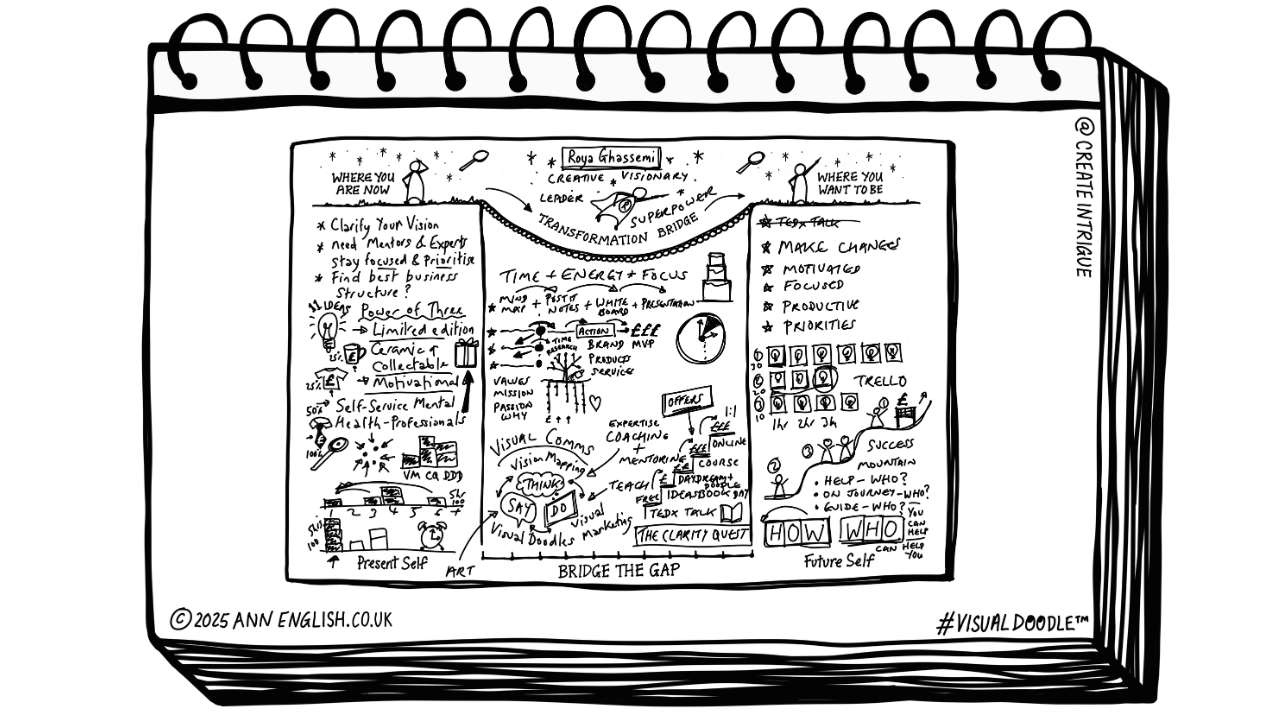 @CREATE INTRIGUE
Roya Ghassemi
CREATIVE VISIONARY
LEADER
SUPERPOWER
TRANSFORMATION BRIDGE
WHERE YOU
ARE NOW
* Clarify Your Vision
* need Mentors & Experts
stay focused & Prioritise
* Find best business
Structure?
11 IDEAS
Power of Three
→ Limited edition
25%
Ceramic
Collectable
25%
£
→ Motivational
50%
→ Self-Service Mental
Health-Professionals
100%
VM CQ DDD
1 2 3 4 5 6 7
5hr
100
Present Self
ART
TIME + ENERGY + FOCUS
* MIND MAP + POST IT NOTES + WHITE BOARD + PRESENTATION
ACTION → £££
BRAND MVP
TIME
RESEARCH
PRODUCTS
SERVICE
VALUES
MISSION
PASSION
WHY
£ ↑ ↑
OFFERS
1:1
£££
ONLINE
££
COURSE
££
DAYDREAM +
DOODLE
£
IDEASBOOK DAY
FREE
TEDX TALK
THE CLARITY QUEST
EXPERTISE
COACHING
+
MENTORING
TEACH
VISUAL COMMS
Vision Mapping
THINK
SAY
DO
Visual Doodles
Visual
Marketing
BRIDGE THE GAP
WHERE YOU
WANT TO BE
* TEDX TALK
* MAKE CHANGES
* MOTIVATED
* FOCUSED
* PRODUCTIVE
* PRIORITIES
1
30
2
20
3
10
TRELLO
1hr 2hr 3h
1
£
SUCCESS
MOUNTAIN
3
2
• HELP - WHO?
• ON JOURNEY - WHO?
• GUIDE - WHO?
HOW WHO
YOU
CAN
HELP
CAN HELP
YOU
Future Self
© 2025 ANN ENGLISH.CO.UK
#VISUALDOODLE™